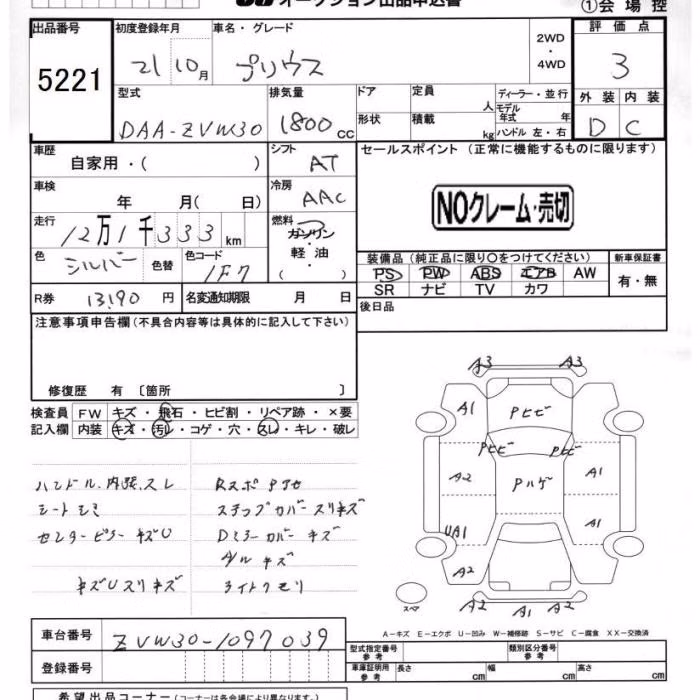 オークション出品申込書
①会場控
出品番号 初度登録年月 車名・グレード 評価点
5221 21 10月 プリウス 2WD・4WD 3
型式 排気量 ドア 定員 人 ディーラー・並行 外装 内装
DAA-ZVW30 1800cc 形状 積載 kg モデル年式 年 ハンドル 左・右 D C
車歴 自家用・( ) シフト AT セールスポイント (正常に機能するものに限ります)
車検 年 月( 日) 冷房 AAC NOクレーム・売切
走行 12万1千333km 燃料 ガソリン・軽油・( )
色 シルバー 色替 色コード 1F7
装備品 (純正品に限り○をつけてください) 新車保証書
PS PW ABS エアB AW 有・無
SR ナビ TV カワ
R券 13,190円 名変通知期限 月 日 後日品
注意事項申告欄 (不具合内容等は具体的に記入して下さい)
修復歴 有 〔箇所 〕
検査員 FW キズ・飛石・ヒビ割・リペア跡・×要
記入欄 内装 キズ・汚レ・コゲ・穴・スレ・キレ・破レ
ハンドル、内張、スレ
シートシミ
センターピラーキズU
キズUスリキズ
Rスポ Pアセ
ステップカバースリキズ
Dミラーカバーキズ
A/Wキズ
ライトクモリ
A3 A3
A1 Pヒビ
Pヒビ Pヒビ
A2 Pハゲ A1
UA1 A1
A2 A2
A2 A1 A2
スペア
A-キズ E-エクボ U-凹み W-補修跡 S-サビ C-腐食 XX-交換済
車台番号 ZVW30-1097039
登録番号
型式指定番号 参考 類別区分番号 参考
車庫証明用 参考 長さ cm 幅 cm 高さ cm
希望出品コーナー (コーナーは各会場により異なります。)